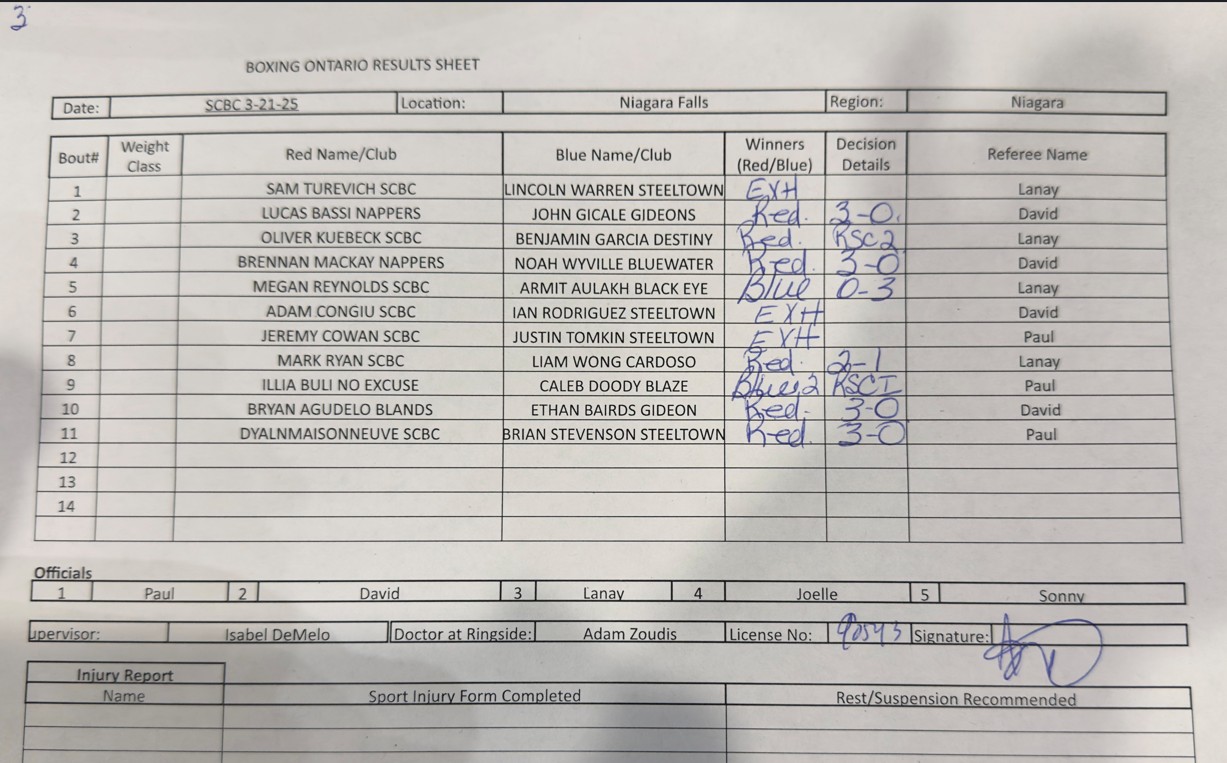 3
BOXING ONTARIO RESULTS SHEET
Date: SCBC 3-21-25 Location: Niagara Falls Region: Niagara
Bout# Weight Class Red Name/Club Blue Name/Club Winners (Red/Blue) Decision Details Referee Name
1 SAM TUREVICH SCBC LINCOLN WARREN STEELTOWN EXH Lanay
2 LUCAS BASSI NAPPERS JOHN GICALE GIDEONS Red. 3-0. David
3 OLIVER KUEBECK SCBC BENJAMIN GARCIA DESTINY Red. RSC2 Lanay
4 BRENNAN MACKAY NAPPERS NOAH WYVILLE BLUEWATER Red. 3-0 David
5 MEGAN REYNOLDS SCBC ARMIT AULAKH BLACK EYE Blue 0-3 Lanay
6 ADAM CONGIU SCBC IAN RODRIGUEZ STEELTOWN EXH David
7 JEREMY COWAN SCBC JUSTIN TOMKIN STEELTOWN EXH Paul
8 MARK RYAN SCBC LIAM WONG CARDOSO Red. 2-1 Lanay
9 ILLIA BULI NO EXCUSE CALEB DOODY BLAZE Blue 2 RSCI Paul
10 BRYAN AGUDELO BLANDS ETHAN BAIRDS GIDEON Red. 3-0 David
11 DYALNMAISONNEUVE SCBC BRIAN STEVENSON STEELTOWN Red. 3-0 Paul
12
13
14
Officials
1 Paul 2 David 3 Lanay 4 Joelle 5 Sonny
upervisor: Isabel DeMelo Doctor at Ringside: Adam Zoudis License No: Signature:
Injury Report
Name Sport Injury Form Completed Rest/Suspension Recommended